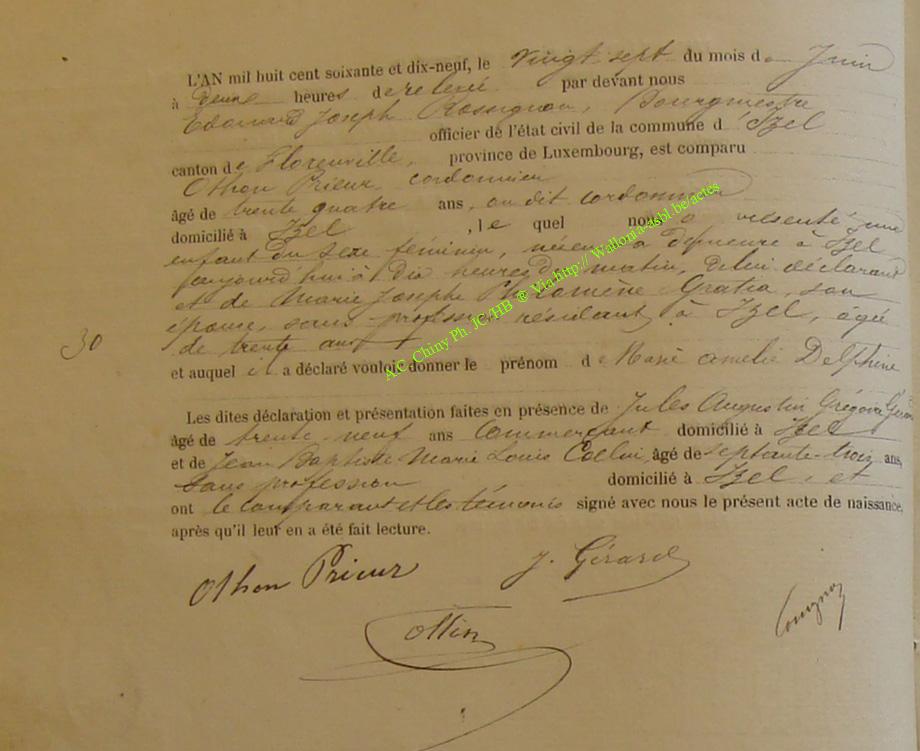 L'AN mil huit cent soixante et dix-neuf, le vingt sept du mois de Juin
à deux heures de relevé par devant nous
Edouard Joseph Rossignon, Bourgmestre
officier de l'état civil de la commune d'Izel
canton de Florenville, province de Luxembourg, est comparu
Othon Prieur cordonnier
âgé de trente quatre ans, cordonnier
domicilié à Izel, le quel nous a présenté une
enfant du sexe féminin, née en sa demeure à Izel
aujourd'hui à dix heures du matin, de lui déclarant
et de Marie Joseph Philomène Gratia, son
épouse, sans profession résidant à Izel, agée
de trente ans
30
et auquel il a déclaré vouloir donner le prénom de Marie Amélie Delphine
Les dites déclaration et présentation faites en présence de Jules Augustin Grégoire
âgé de trente-neuf ans Commerçant domicilié à Izel
et de Jean Baptiste Marie Louis âgé de septante-trois ans,
Sans profession domicilié à Izel, et
ont le comparant et les témoins signé avec nous le présent acte de naissance,
après qu'il leur en a été fait lecture.
Othon Prieur J. Gérard
A/C Chiny Ph. JC/HB ® Via http://Wallonia-asbl.be/actes